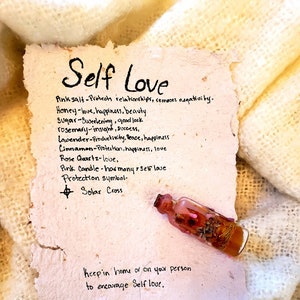 Self Love
Pink salt - Protects relationships, removes negativity.
Honey - love, happiness, beauty
Sugar - Sweetening, good luck
rosemary - insight, success,
Lavender - Productivity, Peace, happiness
Cinnamon - Protection, happiness, love
Rose Quartz - love,
Pink Candle - harmony & self love
Protection symbol:
Solar Cross
Keep in home or on your person
to encourage Self love.